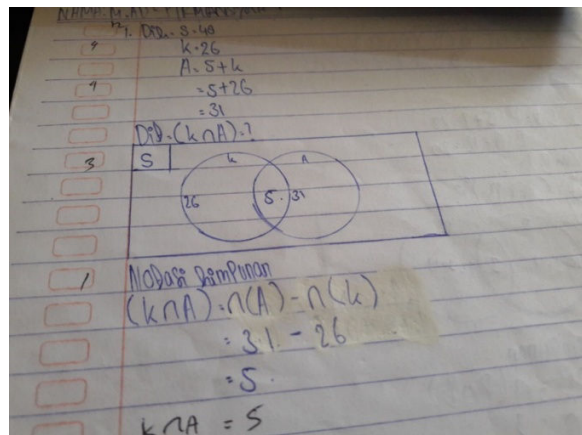 NAMA: M.A
1. Dik. S. 40
9
K. 26
A. 5+k
9
= 5+26
= 31
Dit. (k∩A). ?
3
S
K
A
26
5.
31
1
Nodasi himpunan
(k∩A) = n(A) - n(k)
= 31. - 26
= 5.
k∩A = 5